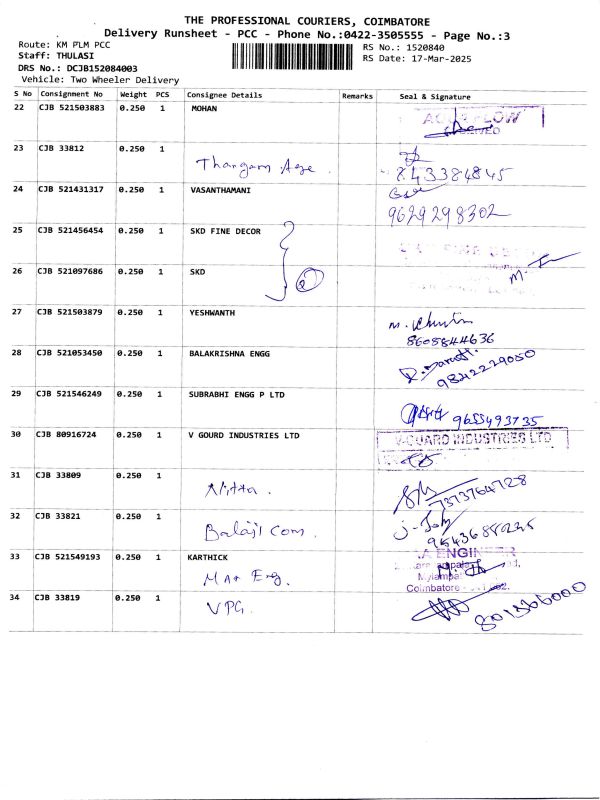 THE PROFESSIONAL COURIERS, COIMBATORE
Delivery Runsheet - PCC - Phone No.:0422-3505555 - Page No.:3
Route: KM PLM PCC
RS No.: 1520840
Staff: THULASI
RS Date: 17-Mar-2025
DRS No.: DCJB152084003
Vehicle: Two Wheeler Delivery
S No Consignment No Weight PCS Consignee Details Remarks Seal & Signature
22 CJB 521503883 0.250 1 MOHAN
23 CJB 33812 0.250 1
Thangam Age. 843384845
24 CJB 521431317 0.250 1 VASANTHAMANI
9629298302
25 CJB 521456454 0.250 1 SKD FINE DECOR
26 CJB 521097686 0.250 1 SKD
2
27 CJB 521503879 0.250 1 YESHWANTH
8608844636
28 CJB 521053450 0.250 1 BALAKRISHNA ENGG
9842229050
29 CJB 521546249 0.250 1 SUBRABHI ENGG P LTD
9655493735
30 CJB 80916724 0.250 1 V GOURD INDUSTRIES LTD
V-GUARD INDUSTRIES LTD
31 CJB 33809 0.250 1
Nitta. 7373764728
32 CJB 33821 0.250 1
Balaji Com.
33 CJB 521549193 0.250 1 KARTHICK
A ENGINEER
Mylampa
Coimbatore
34 CJB 33819 0.250 1
VPG.